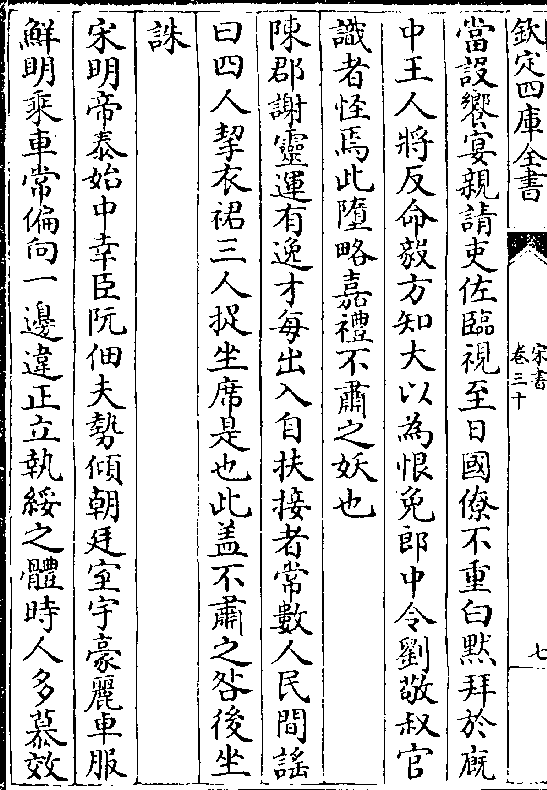 欽定四庫全書
宋書
卷三十
七
當設饗宴親請吏佐臨視至日國僚不重白黙拜於廐
中王人將反命毅方知大以為恨免郎中令劉敬叔官
識者怪焉此墮略嘉禮不肅之妖也
陳郡謝靈運有逸才每出入自扶接者常數人民間謡
曰四人挈衣裙三人捉坐席是也此盖不肅之咎後坐
誅
宋明帝泰始中幸臣阮佃夫勢傾朝廷室宇豪麗車服
鮮明乘車常偏向一邊違正立執綏之體時人多慕效